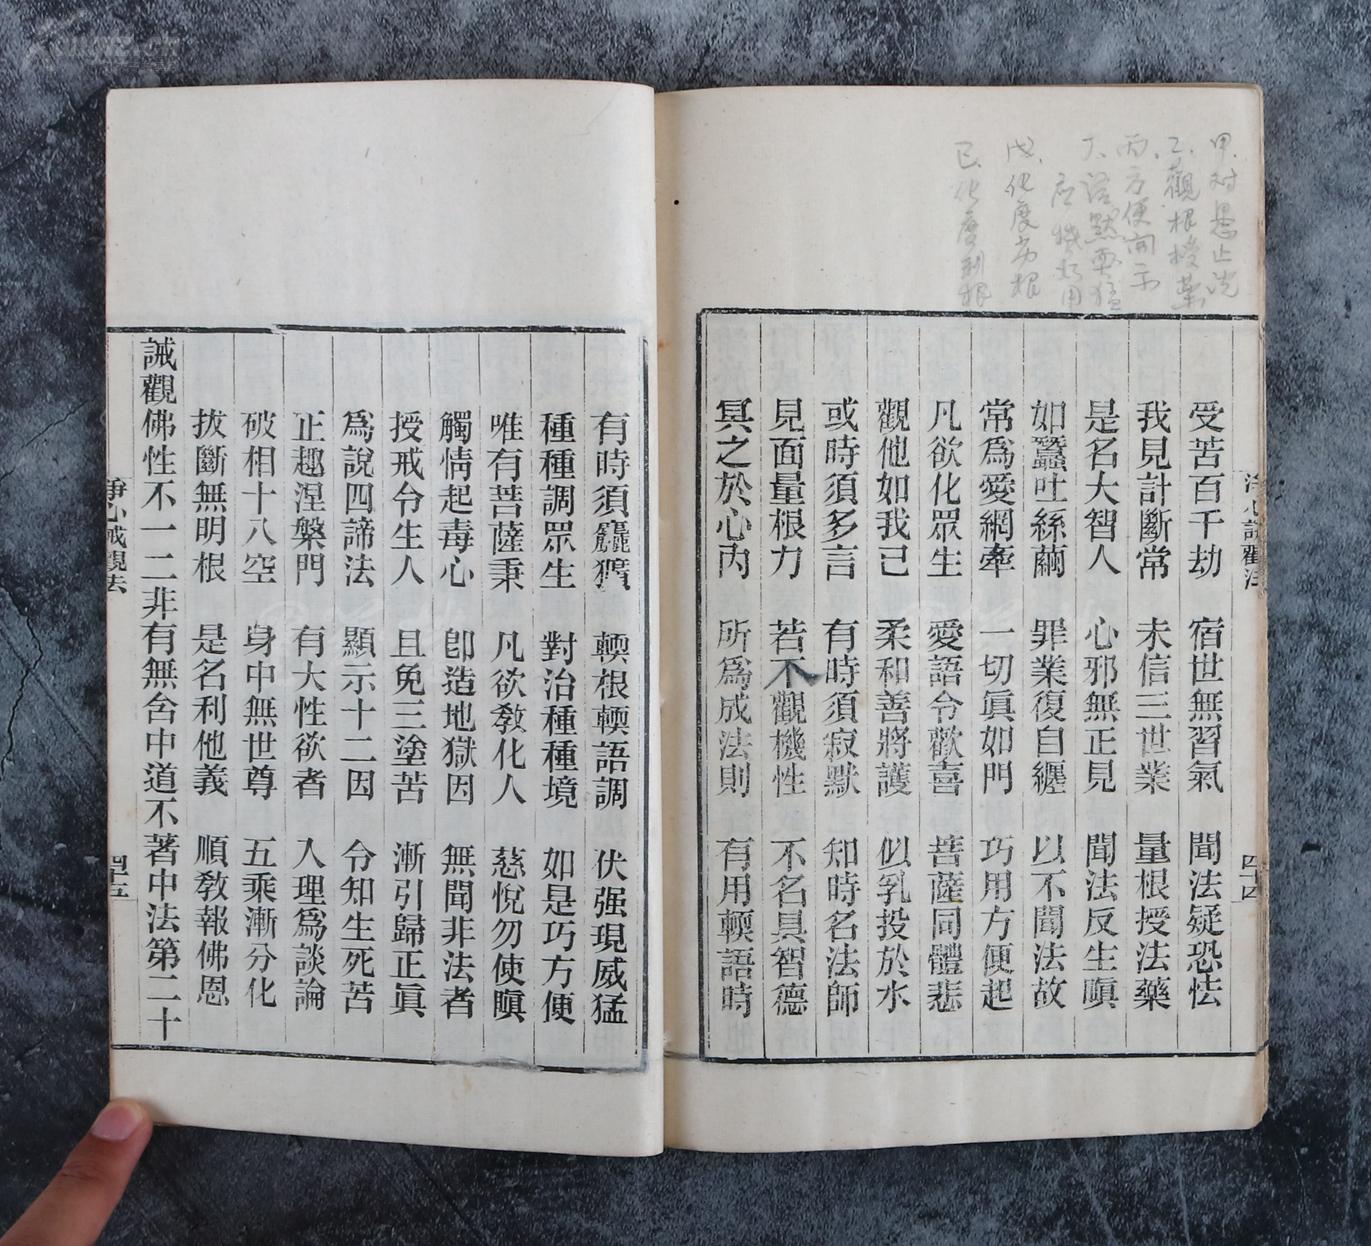 甲、对
乙、觀根授藥
丙、方便開示
丁、語默要
应機起用
戊、化度劣根
己、化度利根
受苦百千劫　宿世無習氣　聞法疑恐怯
我見計斷常　未信三世業　量根授法藥
是名大智人　心邪無正見　聞法反生瞋
如蠶吐絲繭　罪業復自纏　以不聞法故
常爲愛網牽　一切眞如門　巧用方便起
凡欲化眾生　愛語令歡喜　菩薩同體悲
觀他如我己　柔和善將護　似乳投於水
或時須多言　有時須寂默　知時名法師
見面量根力　若不觀機性　不名具智德
冥之於心內　所爲成法則　有用輭語時
四十四
有時須麤獷　輭根輭語調　伏强現威猛
種種調眾生　對治種種境　如是巧方便
唯有菩薩秉　凡欲敎化人　慈悅勿使瞋
觸情起毒心　卽造地獄因　無聞非法者
授戒令生人　且免三塗苦　漸引歸正眞
爲說四諦法　顯示十二因　令知生死苦
正趣涅槃門　有大性欲者　入理爲談論
破相十八空　身中無世尊　五乘漸分化
拔斷無明根　是名利他義　順敎報佛恩
誡觀佛性不一二非有無含中道不著中法第二十
淨心誡觀法
四十五